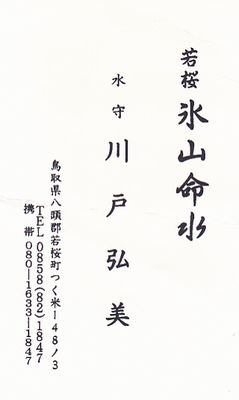 若桜 氷山命水
水守 川戸弘美
鳥取県八頭郡若桜町つく米148ノ3
TEL 0858(82)1847
携帯 080-1633-1847